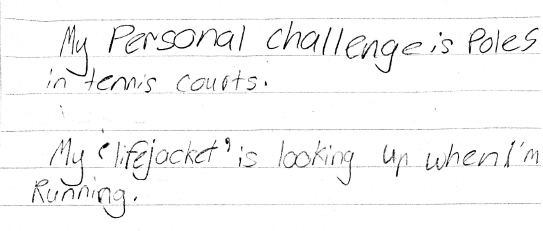 My Personal challenge is Poles
in tennis courts.
My 'lifejacket' is looking up when I'm
Running.